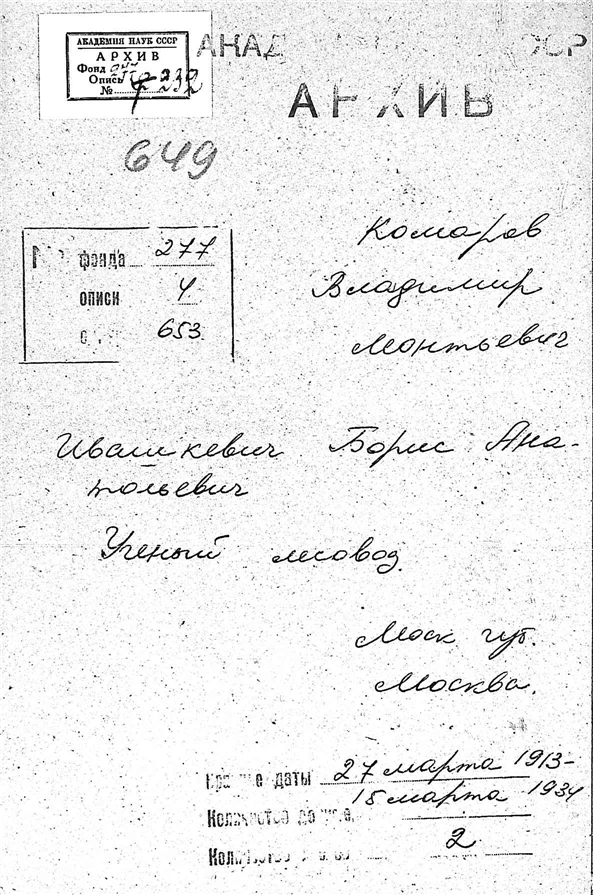 АКАДЕМИЯ НАУК СССР
АРХИВ
Фонд
Опись
№ 232
АКАД СССР
АРХИВ
649
№ фонда 277
описи 4
653
Комаров
Владимир
Леонтьевич
Ивашкевич Борис Ана-
тольевич
Ученый лесовод.
Моск губ.
Москва.
Крайние даты 27 марта 1913-
15 марта 1934
Количество
2
Количество